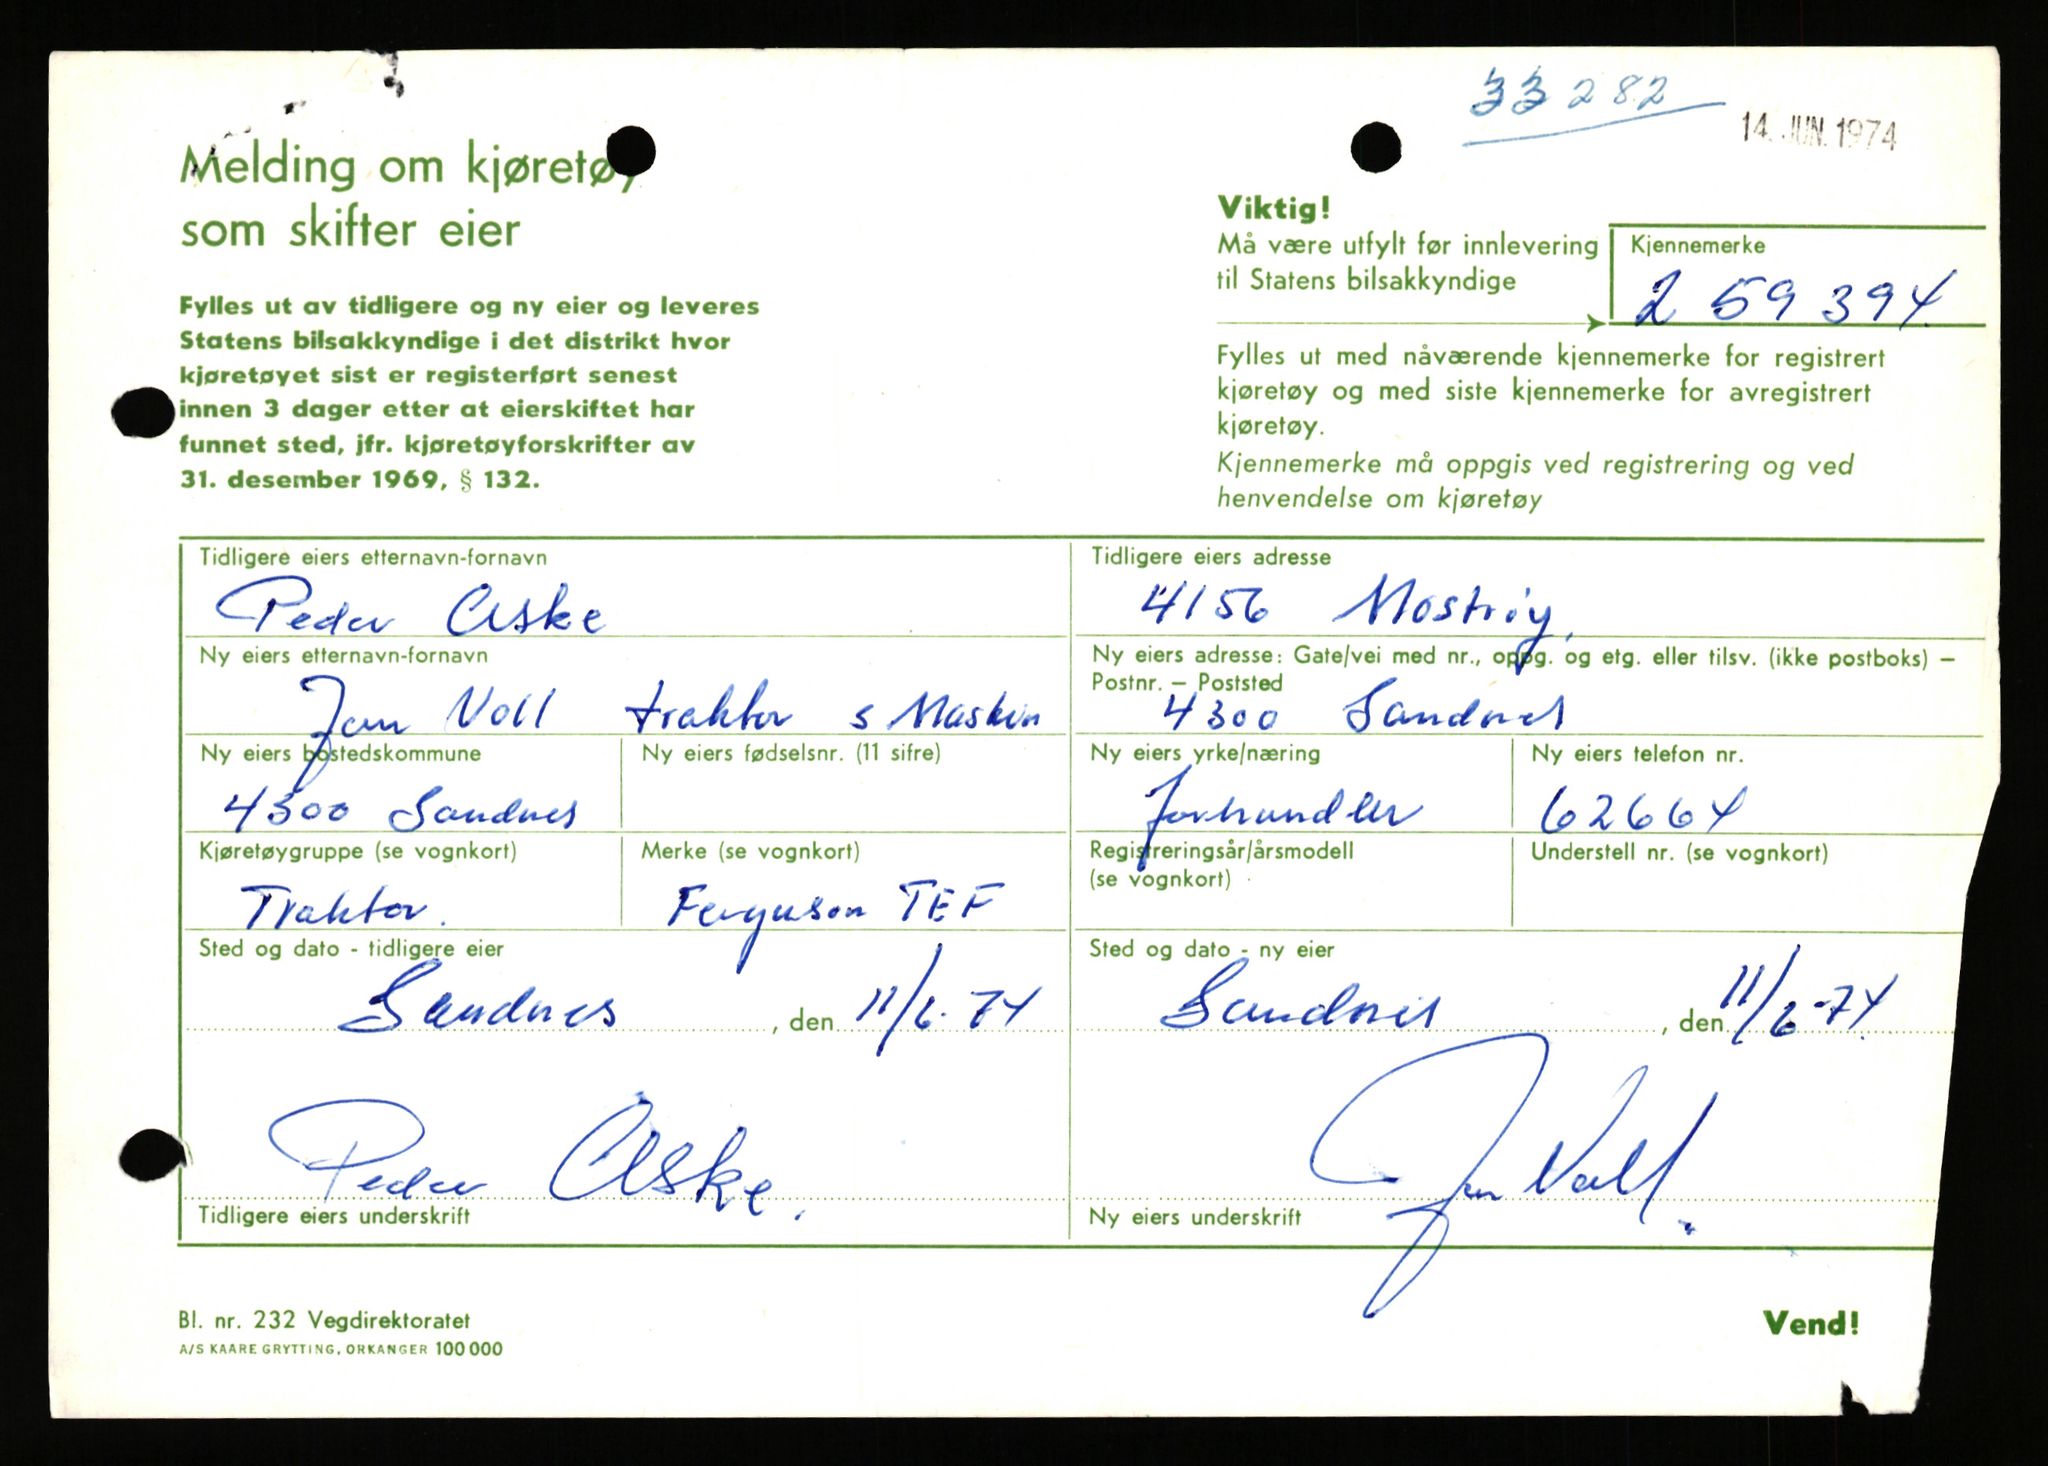 33282
14. JUN. 1974
Melding om kjøretøy
som skifter eier
Fylles ut av tidligere og ny eier og leveres
Statens bilsakkyndige i det distrikt hvor
kjøretøyet sist er registerført senest
innen 3 dager etter at eierskiftet har
funnet sted, jfr. kjøretøyforskrifter av
31. desember 1969, § 132.
Viktig!
Må være utfylt før innlevering
til Statens bilsakkyndige
Kjennemerke
2 59 394
Fylles ut med nåværende kjennemerke for registrert
kjøretøy og med siste kjennemerke for avregistrert
kjøretøy.
Kjennemerke må oppgis ved registrering og ved
henvendelse om kjøretøy
Tidligere eiers etternavn-fornavn
Peder Aske
Tidligere eiers adresse
4156 Mostrøy.
Ny eiers etternavn-fornavn
Jan Voll traktor s Maskin
Ny eiers adresse: Gate/vei med nr., oppg. og etg. eller tilsv. (ikke postboks) –
Postnr. – Poststed
4300 Sandnes
Ny eiers bostedskommune
4300 Sandnes
Ny eiers fødselsnr. (11 sifre)
Ny eiers yrke/næring
forhandler
Ny eiers telefon nr.
62664
Kjøretøygruppe (se vognkort)
Traktor.
Merke (se vognkort)
Ferguson TEF
Registreringsår/årsmodell
(se vognkort)
Understell nr. (se vognkort)
Sted og dato - tidligere eier
Sandnes, den 11/6-74
Sted og dato - ny eier
Sandnes, den 11/6-74
Peder Aske.
Tidligere eiers underskrift
Jan Voll.
Ny eiers underskrift
Bl. nr. 232 Vegdirektoratet
A/S KAARE GRYTTING, ORKANGER 100 000
Vend!